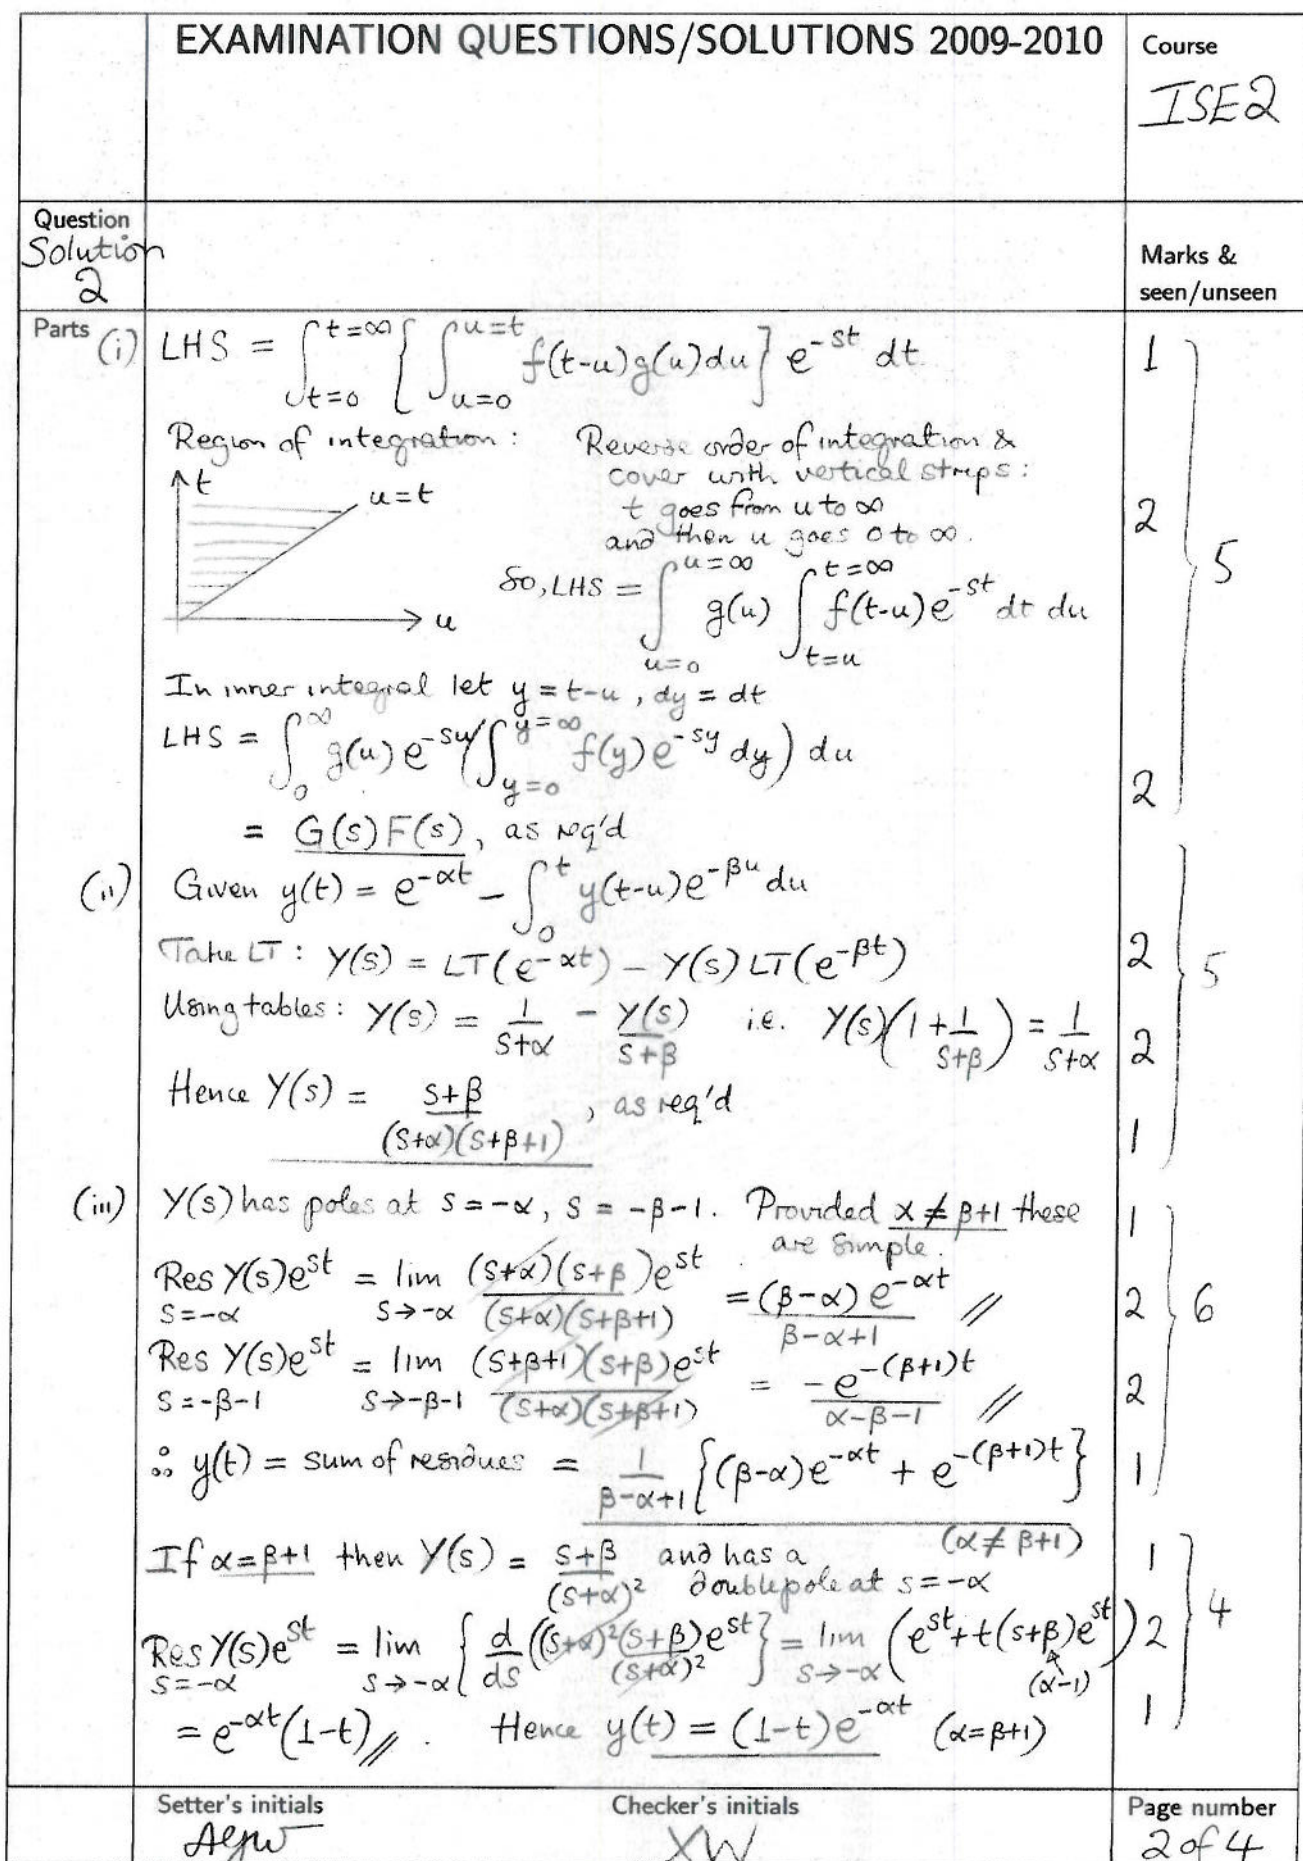 EXAMINATION QUESTIONS/SOLUTIONS 2009-2010
Course
ISE2
Question
Solution
2
Marks &
seen/unseen
Parts
(i) LHS = ∫_{t=0}^{t=∞} { ∫_{u=0}^{u=t} f(t-u)g(u)du } e^{-st} dt 1
Region of integration: Reverse order of integration &
cover with vertical strips:
t goes from u to ∞ 2
and then u goes 0 to ∞.
t
u=t
u
5
So, LHS = ∫_{u=0}^{u=∞} g(u) ∫_{t=u}^{t=∞} f(t-u)e^{-st} dt du
In inner integral let y = t-u, dy = dt
LHS = ∫_0^∞ g(u) e^{-su} (∫_{y=0}^{y=∞} f(y) e^{-sy} dy) du 2
= G(s) F(s), as req'd
(ii) Given y(t) = e^{-αt} - ∫_0^t y(t-u) e^{-βu} du
Take LT: Y(s) = LT(e^{-αt}) - Y(s) LT(e^{-βt}) 2 5
Using tables: Y(s) = 1/(s+α) - Y(s)/(s+β) i.e. Y(s)(1 + 1/(s+β)) = 1/(s+α) 2
Hence Y(s) = (s+β)/((s+α)(s+β+1)), as req'd 1
(iii) Y(s) has poles at s = -α, s = -β-1. Provided α ≠ β+1 these 1
are simple.
Res_{s=-α} Y(s)e^{st} = lim_{s→-α} (s+α)(s+β)e^{st}/((s+α)(s+β+1)) = (β-α) e^{-αt}/(β-α+1) // 2 6
Res_{s=-β-1} Y(s)e^{st} = lim_{s→-β-1} (s+β+1)(s+β)e^{st}/((s+α)(s+β+1)) = -e^{-(β+1)t}/(α-β-1) // 2
∴ y(t) = sum of residues = 1/(β-α+1) {(β-α)e^{-αt} + e^{-(β+1)t}} 1
(α ≠ β+1)
If α=β+1 then Y(s) = (s+β)/(s+α)^2 and has a 1
double pole at s = -α
Res_{s=-α} Y(s)e^{st} = lim_{s→-α} { d/ds ((s+α)^2(s+β)e^{st}/(s+α)^2) } = lim_{s→-α} (e^{st} + t(s+β)e^{st}) 2 4
(α-1)
= e^{-αt}(1-t) //. Hence y(t) = (1-t)e^{-αt} (α=β+1) 1
Setter's initials
Checker's initials
XW
Page number
2 of 4